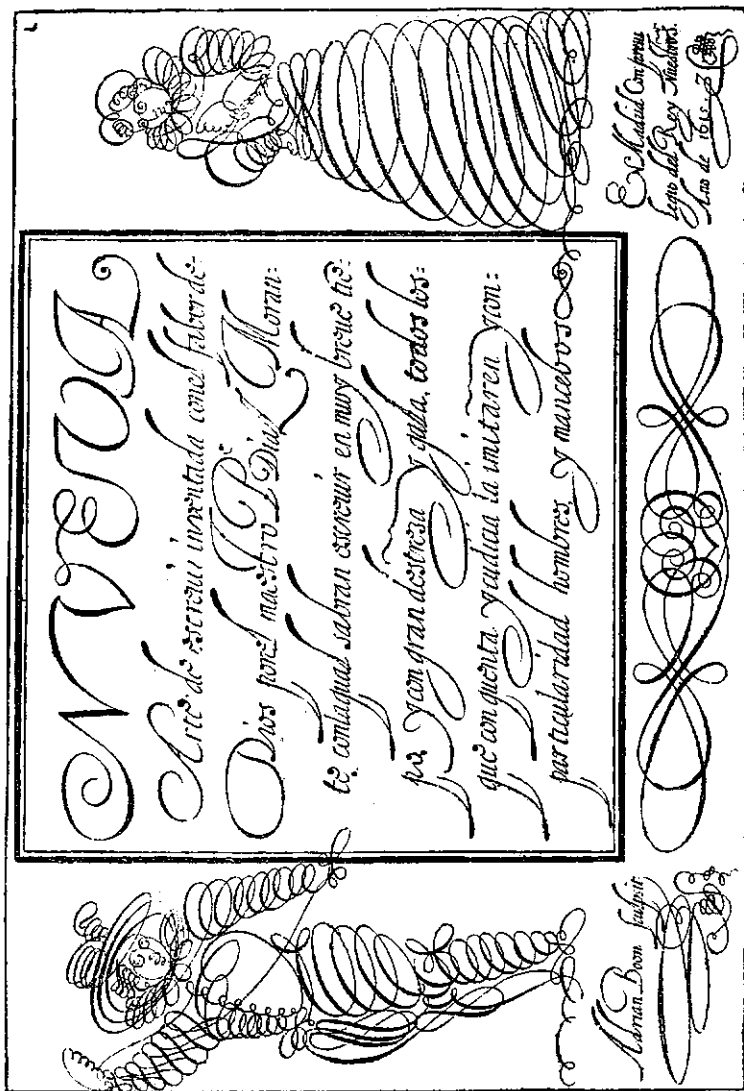 NVEVA
Arte de escreuir inventada con el fabor de=
Dios por el maestro P.º Díaz Moran:
te con la qual sabran escreuir en muy breue tiē=
po, y con gran destresa y gala, todos los=
que con quenta y cudicia la imitaren y con=
particularidad hombres, y mancebos
Adrian Boon sculpsit.
En Madrid Con preui
legio del Rey Nuestro S.ʳ
Año de 1615